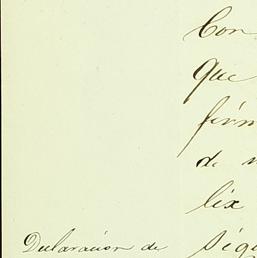 Con
que
firm
de
lix
Declaracion de
sigu